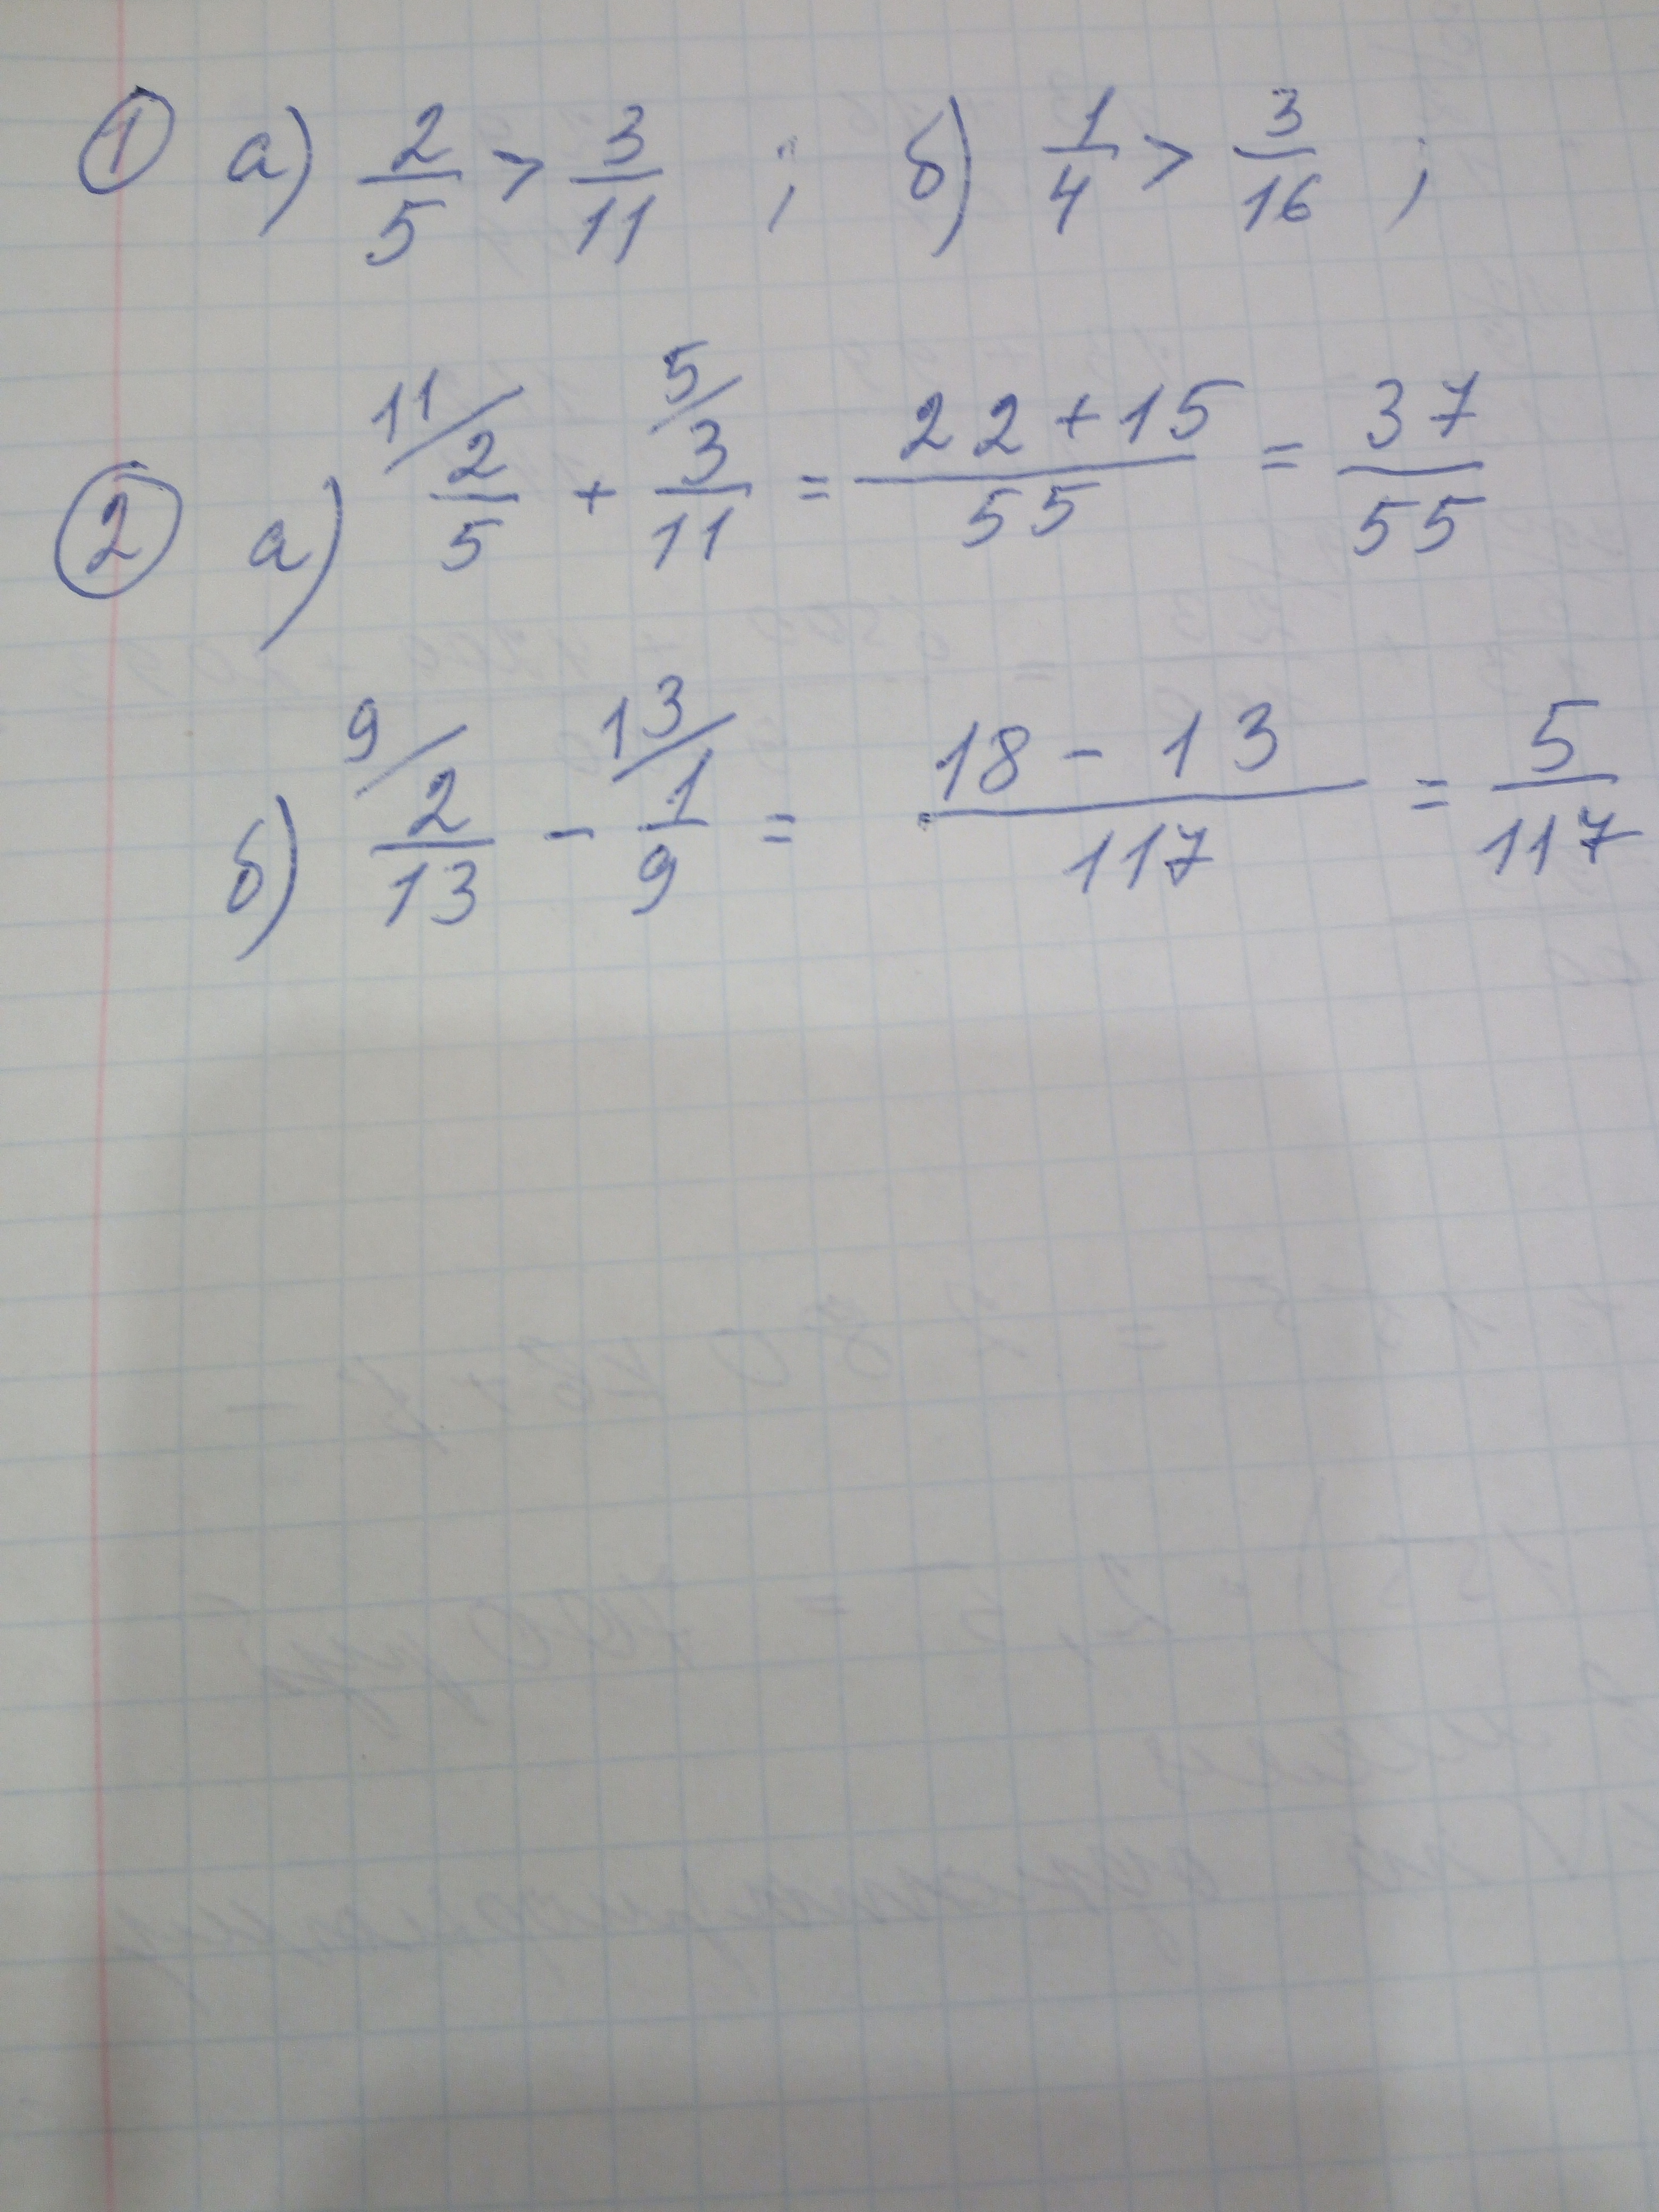 ① а) 2/5 > 3/11 ; б) 1/4 > 3/16 ;
② а) 11/ 2/5 + 5/ 3/11 = 22+15/55 = 37/55
б) 9/ 2/13 - 13/ 1/9 = 18-13/117 = 5/117